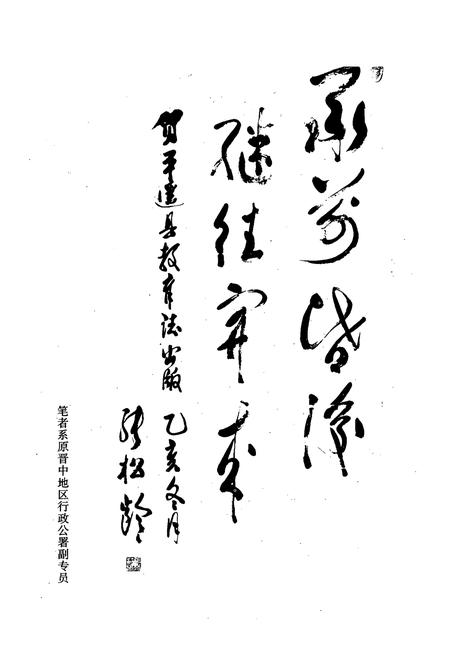 承前启后
继往开来
贺平遥县教育志出版
乙亥冬月
张松龄
笔者系原晋中地区行政公署副专员